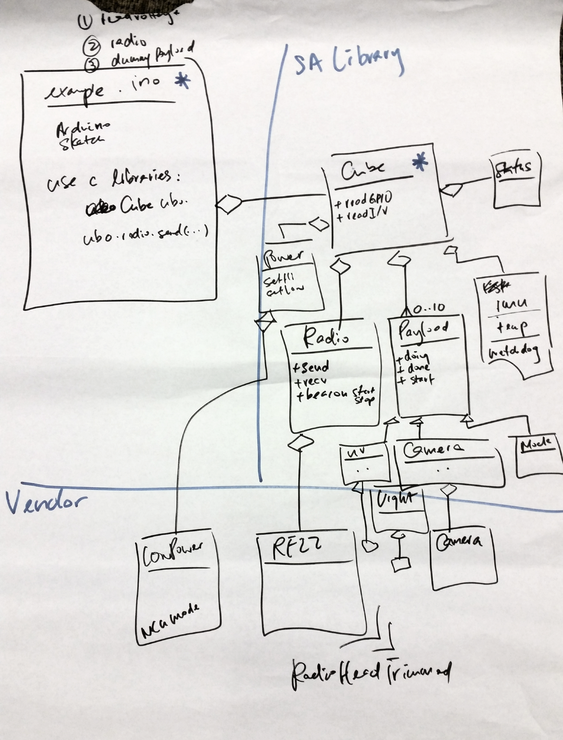 ①
② radio
③ dummy Payload
SA Library
example.ino *
Arduino
Sketch
use c libraries:
Cube ubo.
ubo.radio.send(...)
Cube *
+ readGPIO
+ readI/V
Status
Power
Radio
+ send
+ recv
+ beacon start
stop
0..10
Payload
+ doing
+ done
+ start
imu
temp
watchdog
UV
..
Camera
..
Mock
Vendor
Light
Camera
LowPower
MCU mode
RF22
RadioHeadTrimmed